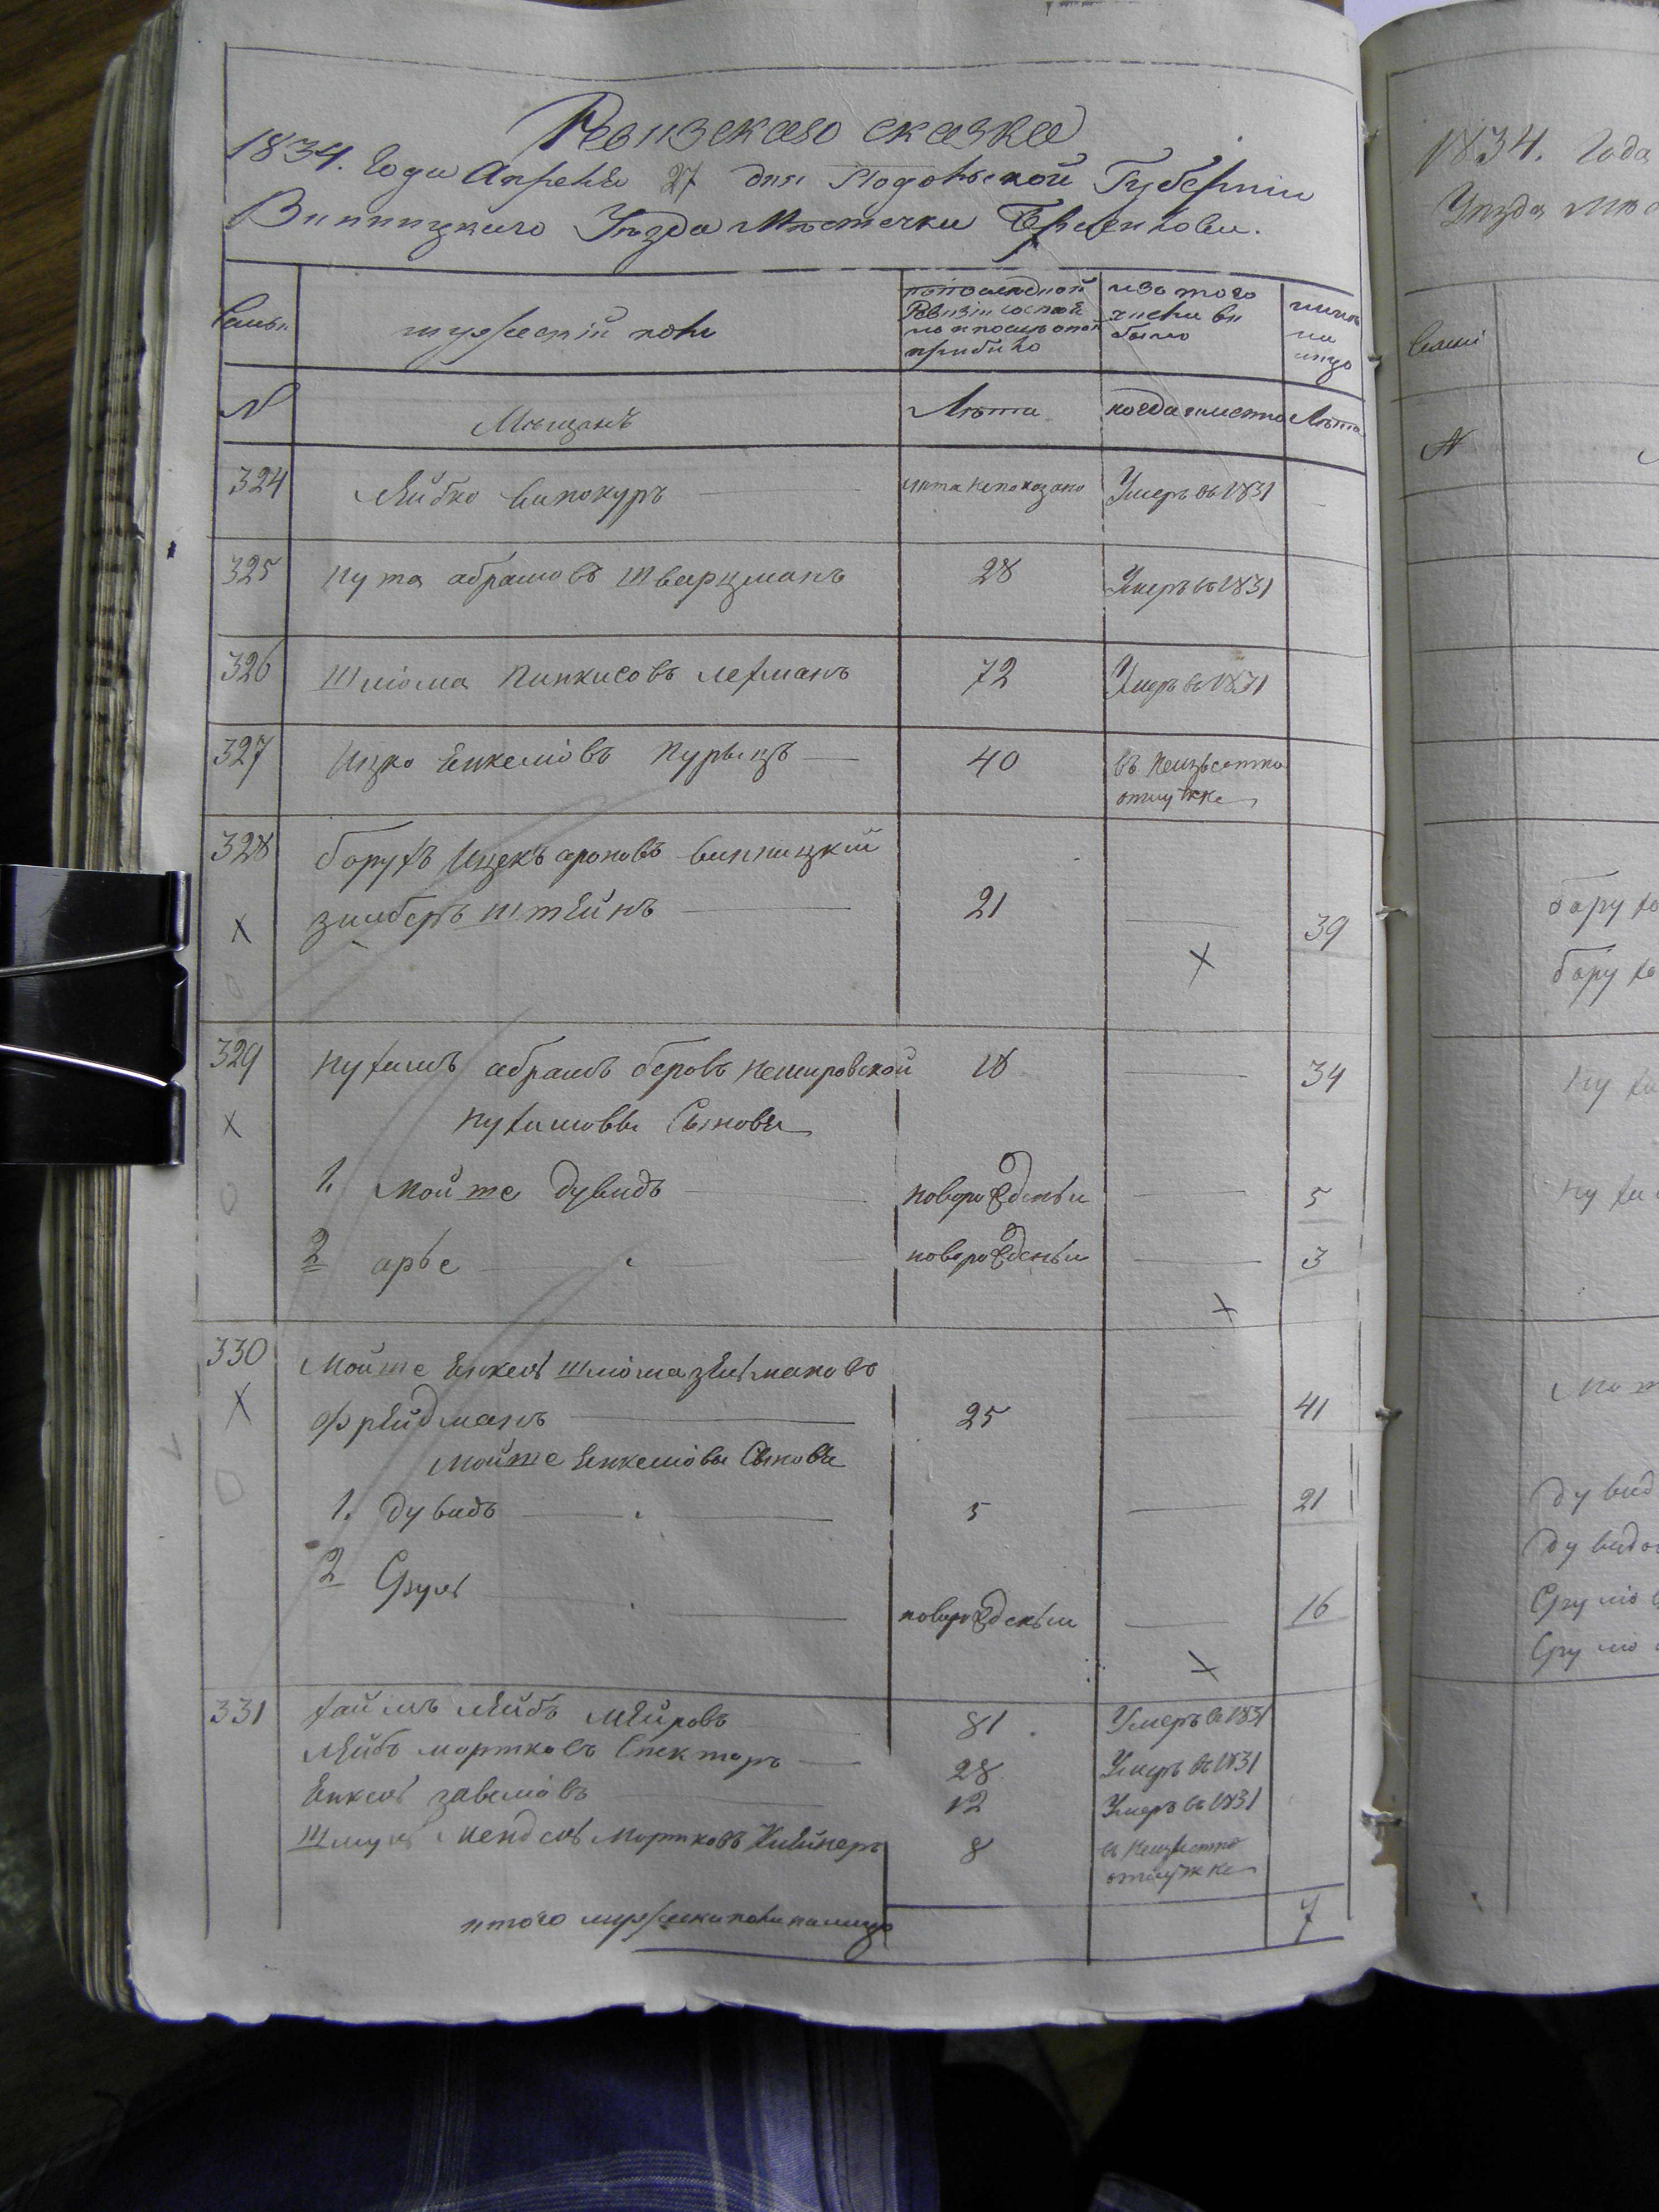 Ревизская сказка
1834. Года Апреля 27 дня Подольской Губернии
Винницкаго Уезда Местечка Браилова.
Семьи
мужеский полъ
по последной
Ревизіи состоя
ло и после оной
прибыло
изъ того
числа вы
было
ныне
на
лицо
N
Мещанъ
Лѣта
когда имянно
Лѣта
324 Лейбко Винокуръ лѣта непоказано Умеръ въ 1831
325 Нута абрамовъ Шварцманъ 28 Умеръ въ 1831
326 Шліома Пинкисовъ лехманъ 72 Умеръ въ 1831
327 Ицко Енкеліовъ Пурыцъ 40 въ неизвестной
отлучке
328 борухъ Ицекъ ароновъ винницкій
зильберъ штейнъ 21 39
329 нухимъ абрамъ беровъ немировской 18 34
нухимовы Сыновья
1. мойше дувидъ новорожденый 5
2 арье новорожденый 3
330 Мойше Енкель шліома зельмановъ
фрейдманъ 25 41
мойше Енкеліовы Сыновья
1. дувидъ 5 21
2 Сруль новорожденый 16
331 хаимъ лейбъ мейровъ 81 Умеръ въ 1831
лейбъ мортковъ Спекторъ 28 Умеръ въ 1831
Енкель завеліовъ 12 Умеръ въ 1831
Шмуль мендель мортковъ Клейнеръ 8 въ неизвестной
отлучке
итого мужеска пола налицо 7
1834. Года
Уезда
Семьи
N
бору
бору
ну
ну
дувид
дувидо
Сруліо
Сруліо